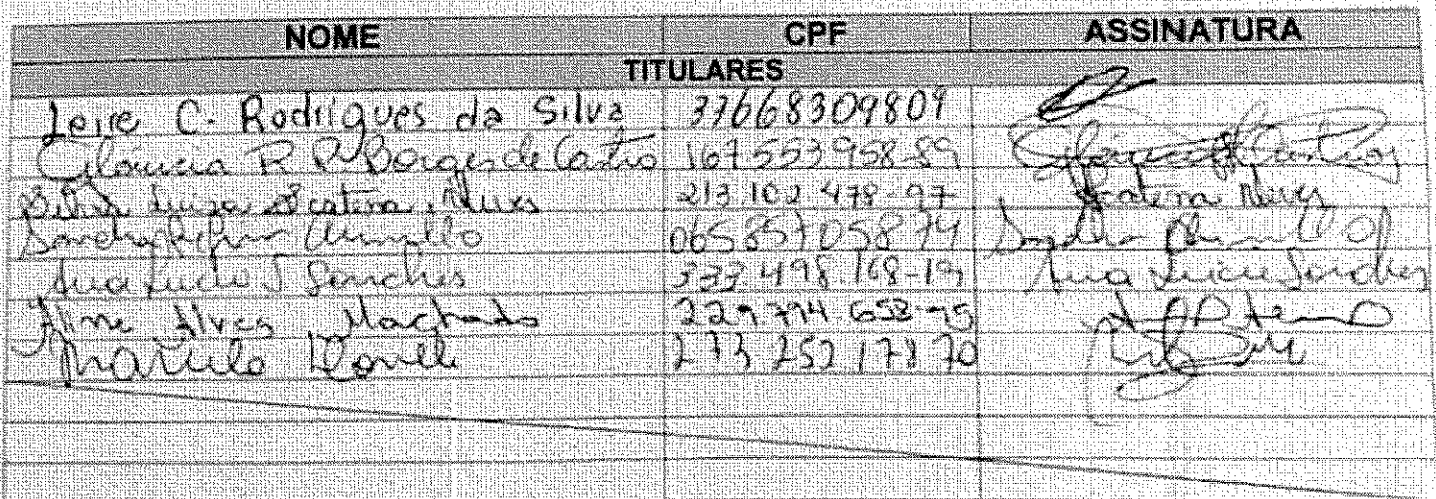 NOME CPF ASSINATURA
TITULARES
Leire C. Rodrigues da Silva 37668309809
Gláucia R. P. Borges de Castro 167553958-89
Luiza Scatena Neves 213.102.478-97 Scatena Neves
06585705874
Ana Lucia S Sanches 333.498.168-19 Ana Lucia Sanches
Aline Alves Machado 229.794.658-95
273 252 178 70